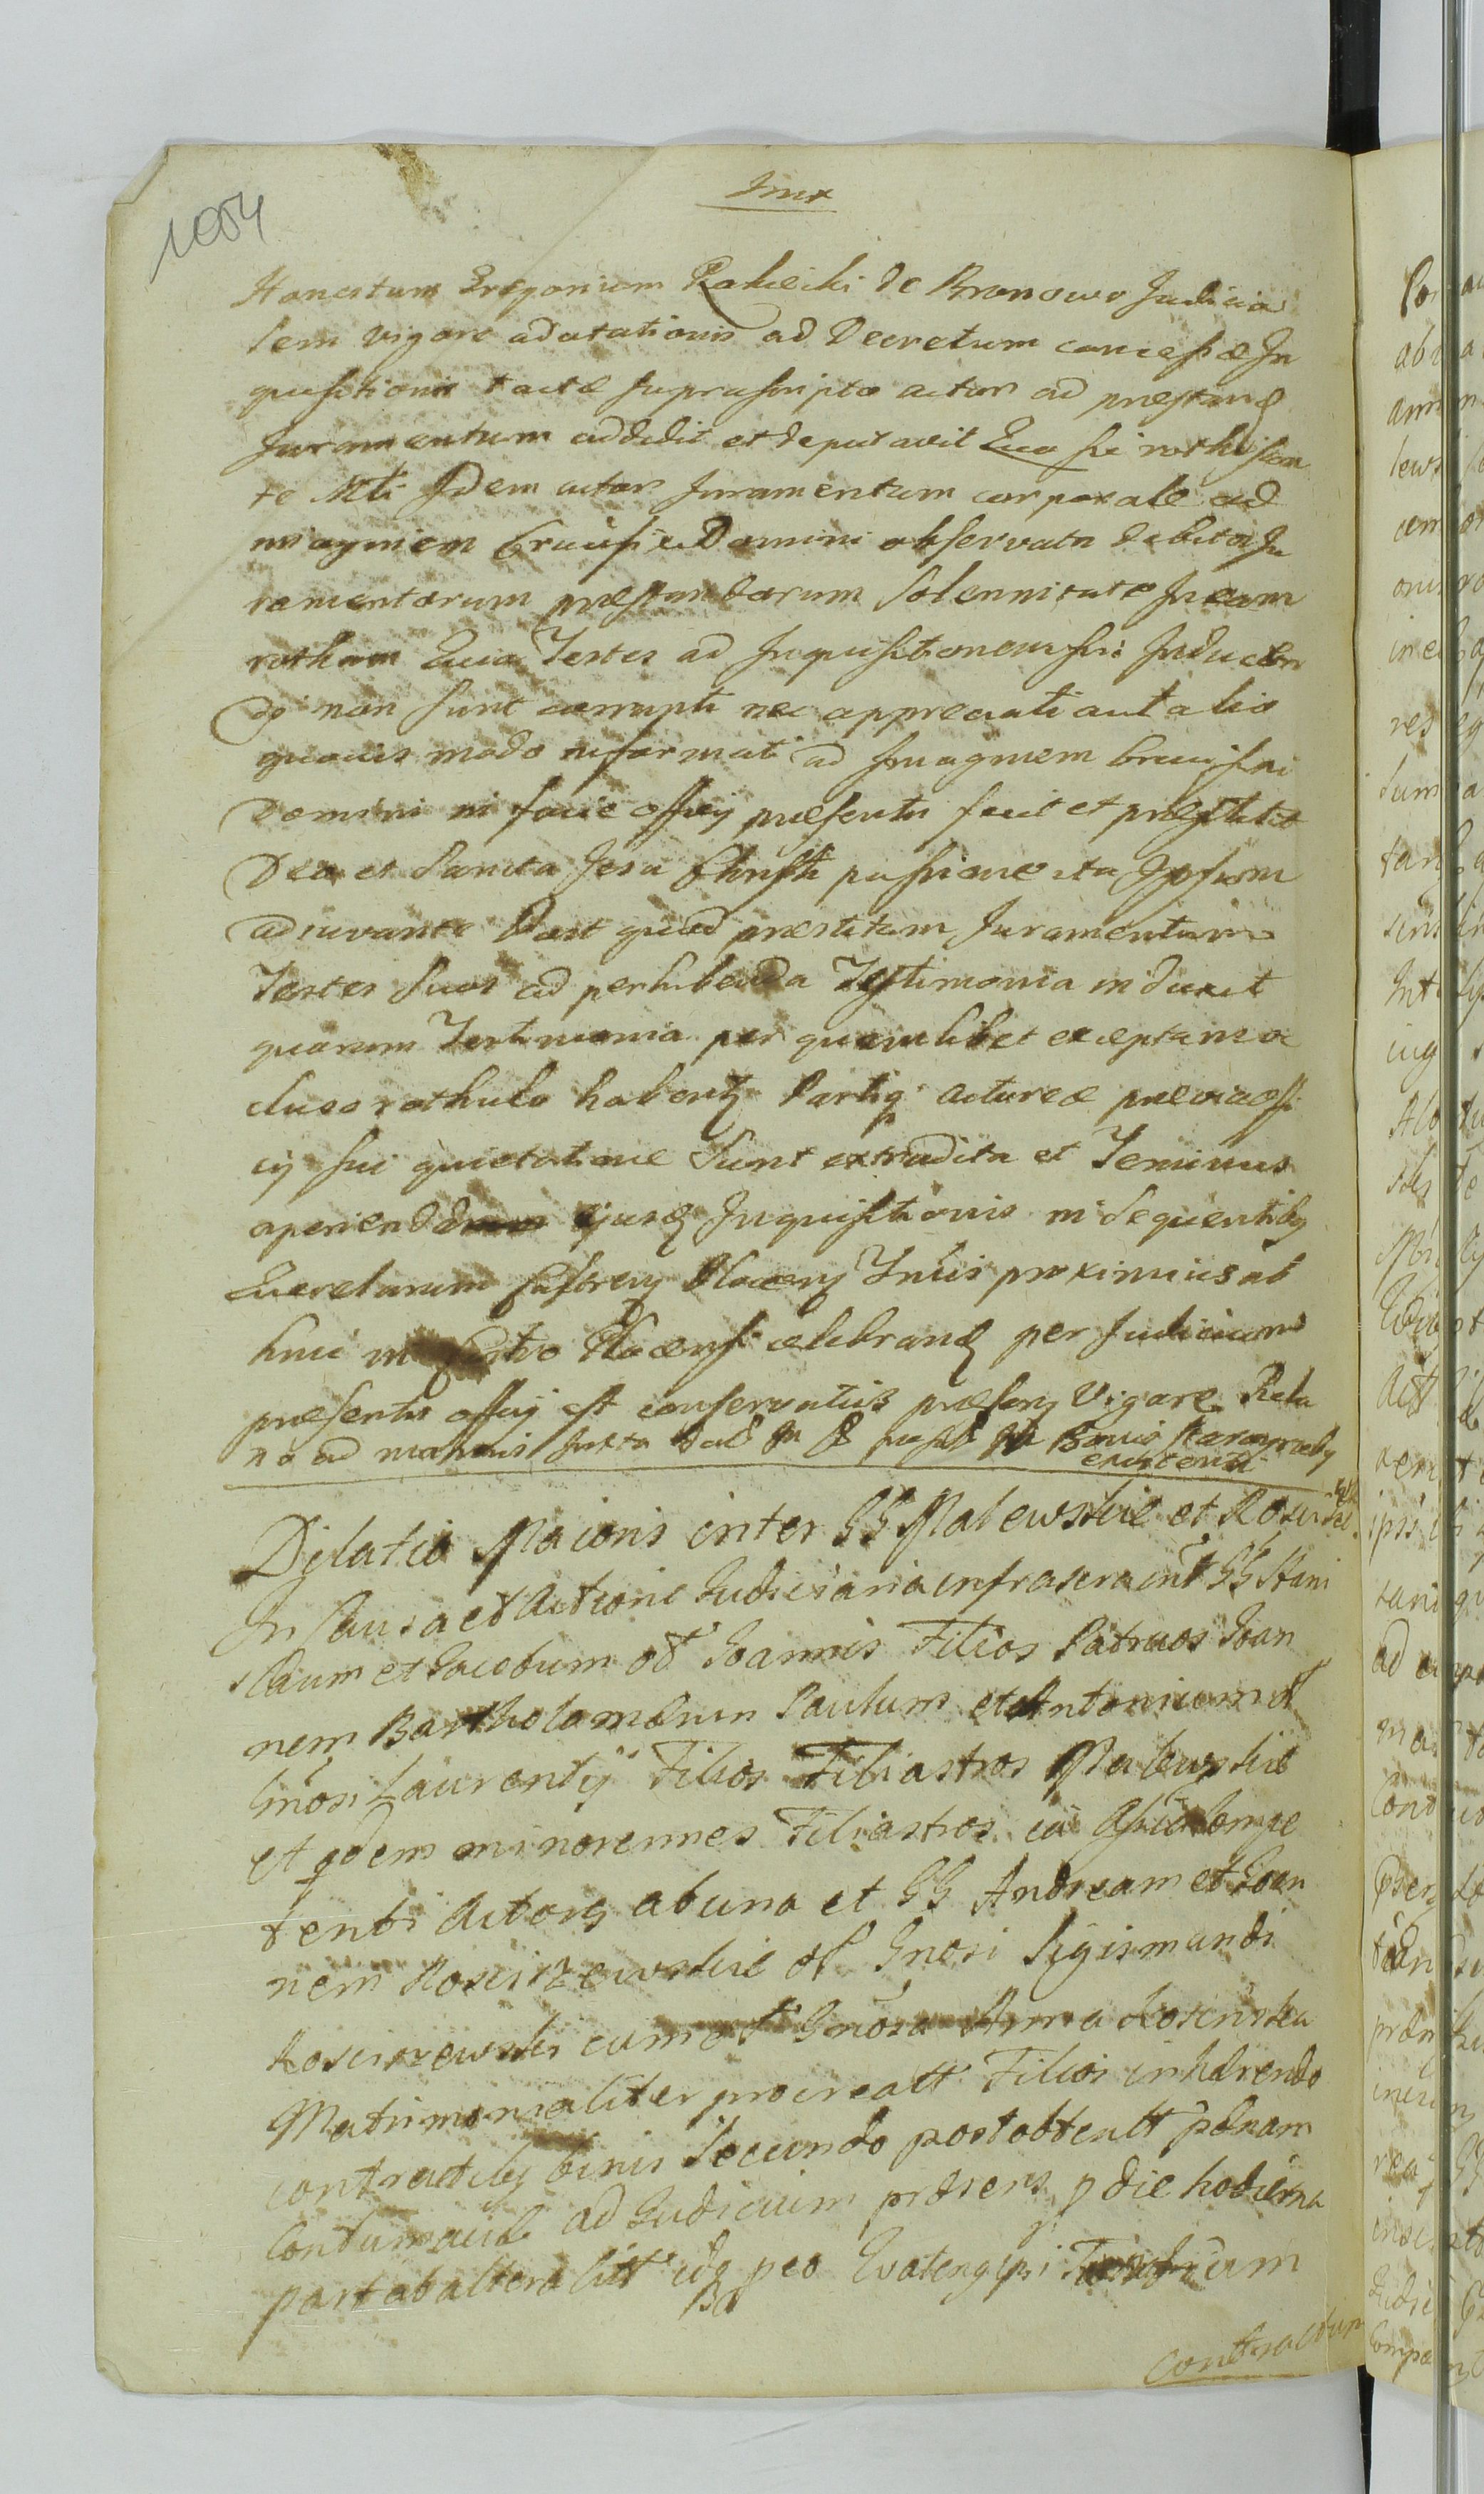 1004
Honestum Gregorium Rakicki de Bronowo Judicia
lem vigore adcitationis ad Decretum concessæ In
quisitionis tactæ suprascripto actor ad præstand
Juramentum addidit et deputavit Quo sic rothison
te Mti Idem actor Juramentum corporale ad
imaginem Crucifixi Domini observata debita Ju
ramentorum præstandorum Solennitate In eam
rotham Quia Testes ad Inquisitionem sui Inducen
di non sunt corrupti nec appreciati aut alio
quovis modo informati ad Imaginem Crucifixi
Domini in facie officij præsentis fecit et præstitit
Deo et Sancta Jesu Christi passione ita Ipsum
adiuvante Post quod præstitum Juramentum
Testes Suos ad perhibenda Testimonia induxit
quorum Testimonia per quemlibet excepta in
cluso rothulo habent Partiq actoreæ prævia offi
cij sui quietatione Sunt extradita et Terminus
aperiend ejusd Inquisitionis in Sequentibq
Querelarum Plocens proximius ab
hinc in celebrand per Judicium
præsentis officij est conservatus præsens Vigore Rela
existen
Dilatio Maioris inter GG Malewskie et Kosci
In Causa et Actione Judiciaria infrascra int GG Stani
slaum et Jacobum ol Joannis Filios Patruos Joan
nem Bartholomæum Paulum et Antonium ol
Gnosi Laurentij Filios Filiastros Malewskie
et qdem minorennes Filiastros
tenti Actors ab una et GG Andream et Joan
nem Kosciszewskie ol Gnosi Sigismundi
Kosciszewski cum ol Gnosa Anna Kosinska
Matrimonialiter procreatt Filios inhærendo
contractibq binis Secundo post obtentt pænam
Contumaciæ ad Judicium præsens p die hodierna
part ab altera citt
contractum